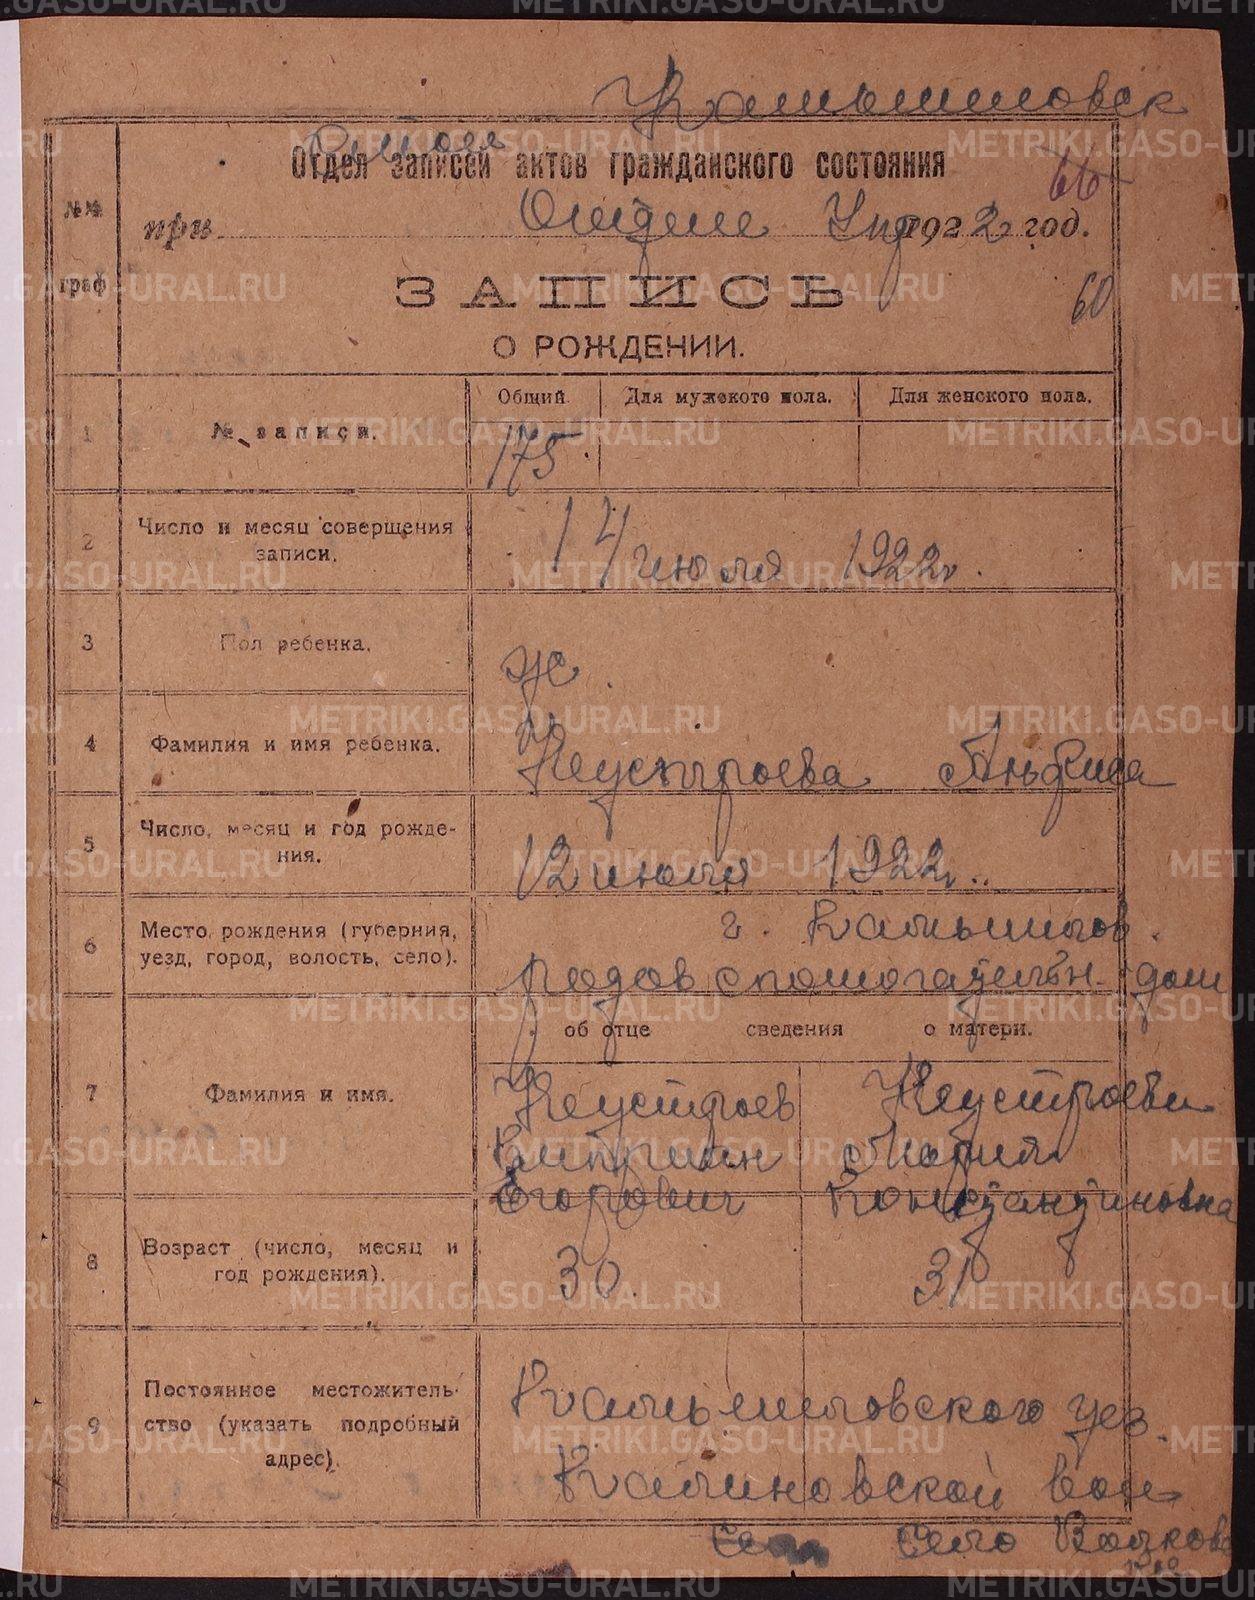 Камышловск
Отдел записей актов гражданского состояния
66
№№
граф
при Отделе Упр 1922 год.
ЗАПИСЬ
60
О РОЖДЕНИИ.
Общий. Для мужского пола. Для женского пола.
1 № записи. 175.
2 Число и месяц совершения
записи.
14 июля 1922г.
3 Пол ребенка.
Ж.
4 Фамилия и имя ребенка.
Неустроева Анфиса
5 Число, месяц и год рожде-
ния.
12 июля 1922г.
6 Место рождения (губерния,
уезд, город, волость, село).
г. Камышлов.
родовспомогательн. дом
об отце сведения о матери.
7 Фамилия и имя.
Неустроев Неустроева
Киприан Мария
Егорович Константиновна
8 Возраст (число, месяц и
год рождения).
30. 31
9 Постоянное местожитель-
ство (указать подробный
адрес).
Камышловского уез.
Калиновской вол
Село Волково
METRIKI.GASO-URAL.RU